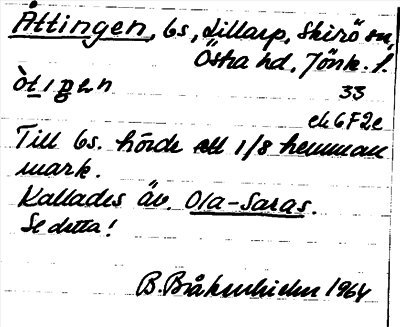 Åttingen, bs, Lillarp, Skirö sn,
Östra hd, Jönk. l.
33
ek 6F2e
Till bs. hörde ett 1/8 hemman
mark.
Kallades äv. Ola-Saras.
Se detta!
B. 1964